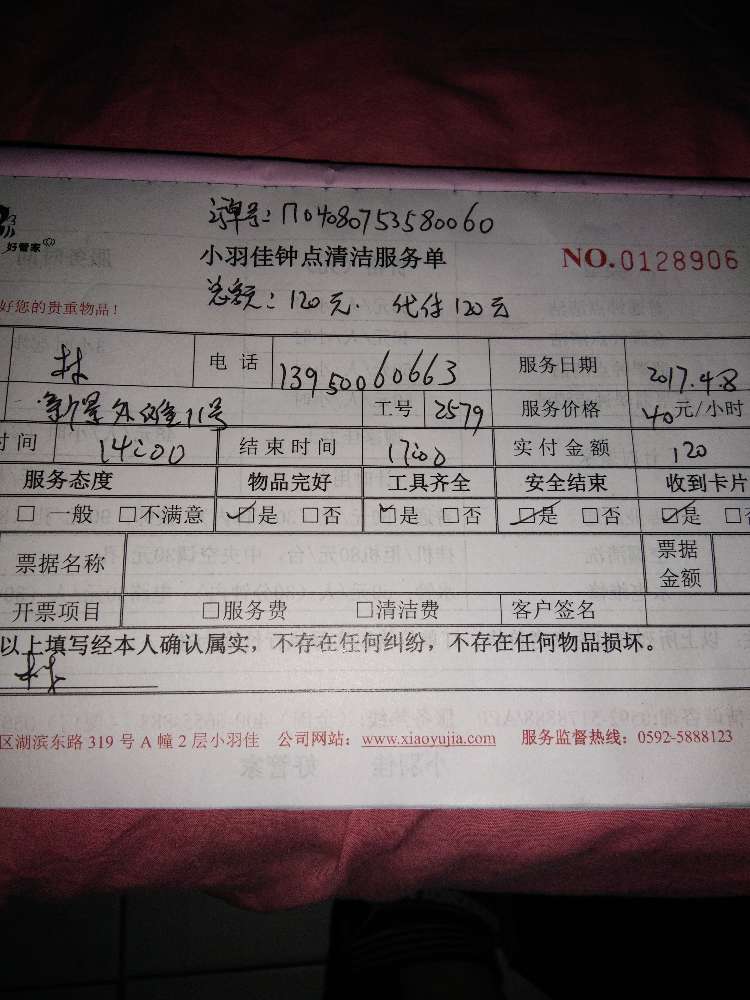 订单号：1704080753580060
好管家
小羽佳钟点清洁服务单
NO.0128906
总额：120元. 代付120元
好您的贵重物品！
林 电话 13950060663 服务日期 2017.4.8
新景外滩11号 工号 2579 服务价格 40元/小时
时间 14:00 结束时间 17:00 实付金额 120
服务态度 物品完好 工具齐全 安全结束 收到卡片
□一般 □不满意 ☑是 □否 ☑是 □否 ☑是 □否 ☑是 □
票据名称 票据金额
开票项目 □服务费 □清洁费 客户签名
以上填写经本人确认属实，不存在任何纠纷，不存在任何物品损坏。
林
区湖滨东路319号A幢2层小羽佳 公司网站：www.xiaoyujia.com 服务监督热线：0592-5888123